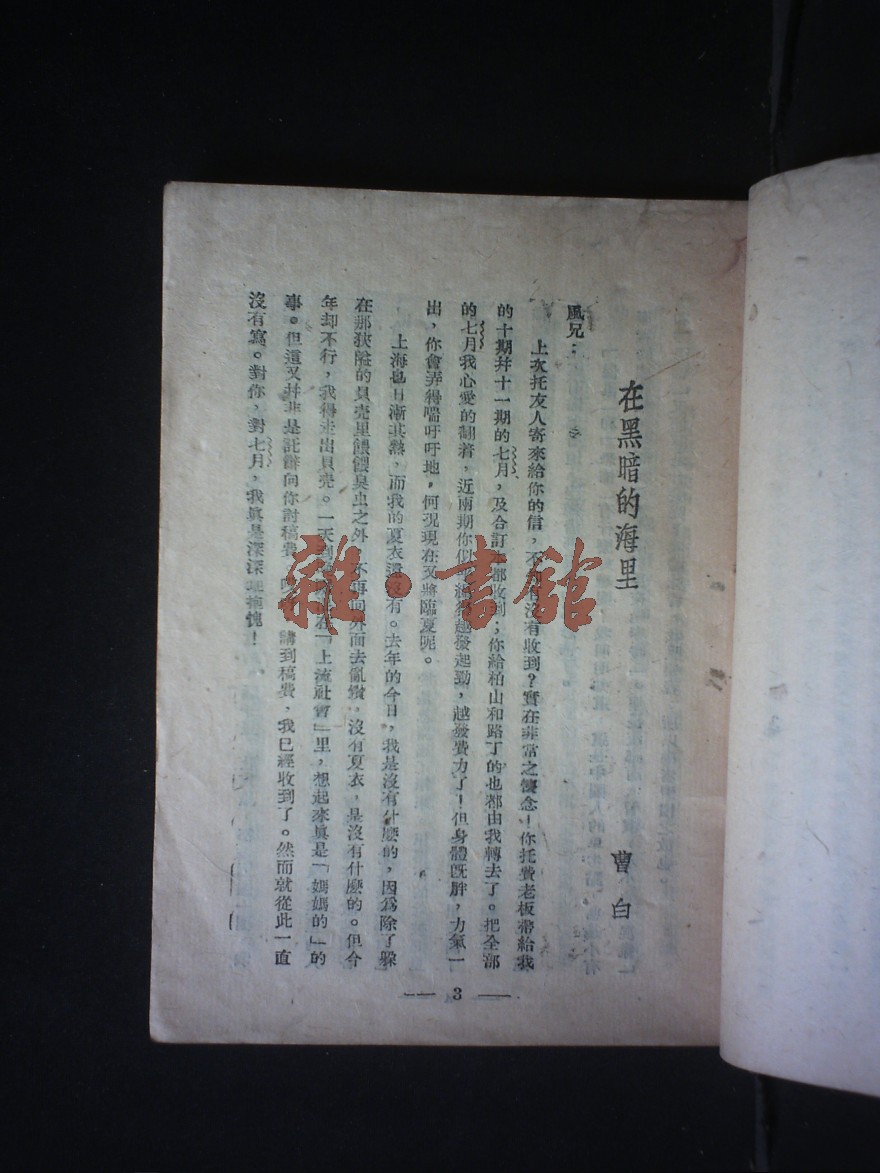 在黑暗的海里
曹白
風兄：
上次托友人寄來給你的信，不知有沒有收到？實在非常之懷念！你托費老板帶給我
的十期幷十一期的七月，及合訂本都收到；你給柏山和路丁的也都由我轉去了。把全部
的七月我心愛的翻着，近兩期你似乎越發起勁，越發費力了！但身體旣胖，力氣一
出，你會弄得喘吁吁地，何況現在又將臨夏呢。
上海也日漸其熱，而我的夏衣還沒有。去年的今日，我是沒有什麽的，因爲除了躱
在那狹隘的貝壳里餵餵臭虫之外，不再向外面去亂鑽，沒有夏衣，是沒有什麽的。但今
年却不行，我得走出貝壳。一天到在「上流社會」里，想起來眞是「媽媽的」的
事。但這又幷非是託辭向你討稿費，講到稿費，我已經收到了。然而就從此一直
沒有寫。對你，對七月，我眞是深深地抱愧！
— 3 —
雜·書館